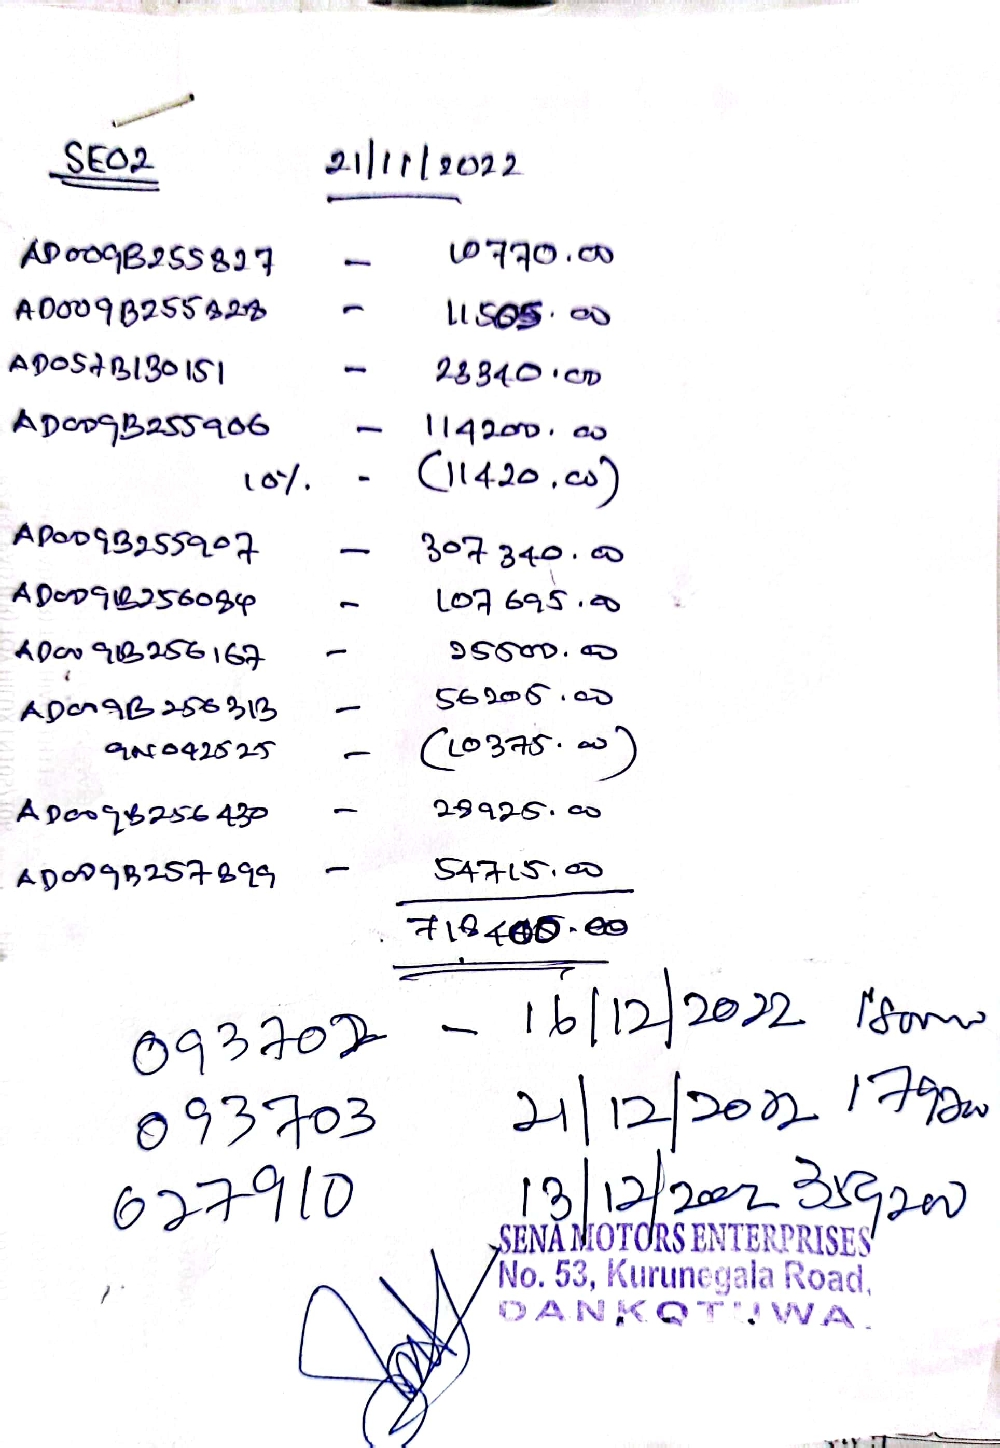 SE02 21/11/2022
AD009B255827 - 10770.00
AD009B255828 - 11505.00
AD057B130151 - 23340.00
AD009B255906 - 114200.00
10%. - (11420.00)
AD009B255907 - 307340.00
AD009B256084 - 107695.00
AD009B256167 - 25500.00
AD009B256313 - 56205.00
- (10375.00)
AD009B256430 - 28925.00
AD009B257899 - 54715.00
718400.00
093702 - 16/12/2022 180000
093703 21/12/2022 179200
627910 13/12/2022 359200
SENA MOTORS ENTERPRISES
No. 53, Kurunegala Road,
DANKOTUWA.